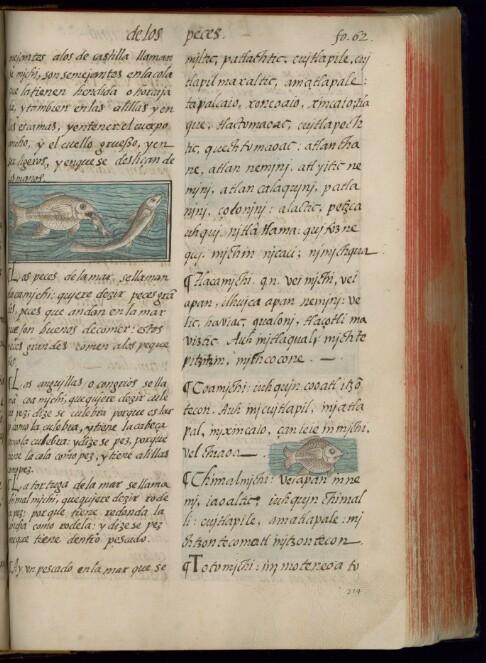 de los peces. fo. 62.
nejantes alos de castilla llaman
michi, son semejantes en la cola
que la tienen hendida o horcaja
y tambien en las alillas y en
las escamas, y en tener el cuerpo
ancho, y el cuello gruesso, y en
ligeros, y en que se deslican de
las manos.
Las peces de la mar, se llaman
tlacamichi: quiere dezir peces gran
des, peces que andan en la mar
que son buenos de comer: estos
peces grandes comen alos peque
¶ Las anguillas o congrios se lla
man coamichi, que quiere dezir cule
bra pez: dize se culebra porque es lar
como la culebra, y tiene la cabeça
como la culebra: y dize se pez, porque
tiene la cola como pez, y tiene alillas
como pez.
¶ La tortuga de la mar se llama
chimalmichi, que quiere dezir rode
la pez: porque tiene redonda la
concha como rodela: y dize se pez
porque tiene dentro pescado.
¶ Ay un pescado en la mar que se
miltic, patlachtic, cujtlapile, cuj
tlapilmaxaltic, amatlapale:
tapalcaio, xoncoaio, xincaio,
que, tlactomacac, cujtlapech
tic, quechtomaoac: atlan tha
ne, atlan nemjnj, atl yitic ne
mjnj, atlan calaqujnj, patla
njnj, colonjnj: alactic, petzca
uhquj
quj michin njcaci; njmichqua.
¶ Tlacamichi. q.n. vei mjchi, vei
apan, ilhujca apan nemjnj: ve
lic, haviac, qualonj, tlaçotli ma
viztic. Auh injtlaqualy michte
pitzitzin, michcocone.
¶ Coamichi: iuhqujn cooatl itzo
tecon. Auh in jcujtlapil, in jatla
pal, in jxincaio, çan ie ie in mjchi,
vel chiaoa.
¶ Chimalmichi: vei apan mne
mj, iaoaltic, iuhqujn chimal
li: cujtlapile, amatlapale: mj
chtzontecomatl in jtzontecon.
¶ Totomjchi: in moteneoa to
214